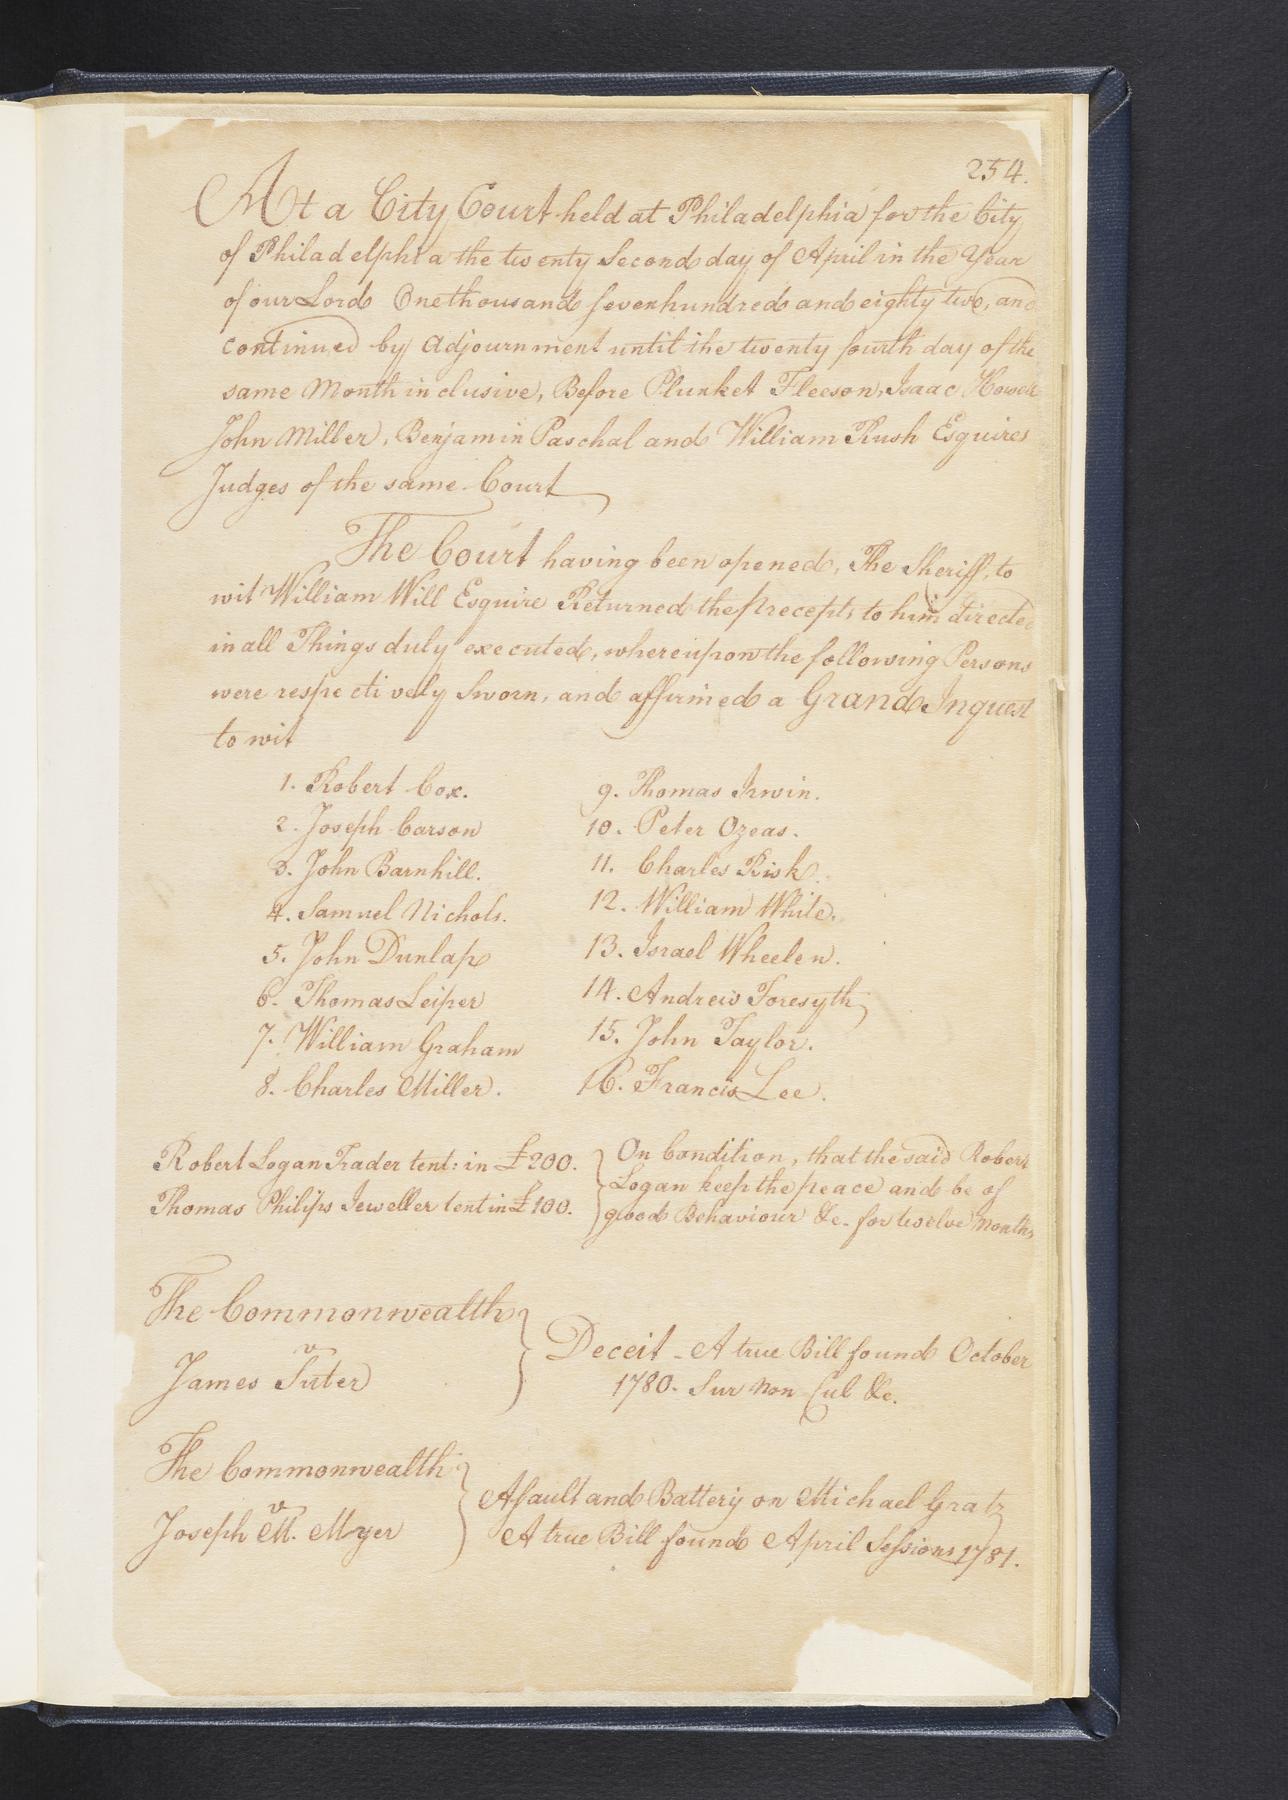 254.
At a City Court held at Philadelphia for the City
of Philadelphia the twenty Second day of April in the Year
of our Lord One thousand sevenhundred and eighty two, and
continued by Adjournment until the twenty fourth day of the
same Month inclusive, Before Plunket Fleeson, Isaac Howell
John Miller, Benjamin Paschal and William Rush Esquires
Judges of the same Court
The Court having been opened, The Sheriff, to
wit William Will Esquire Returned the Precepts to him directed
in all Things duly executed, whereupon the following Persons
were respectively sworn, and affirmed a Grand Inquest
to wit
1. Robert Cox.
2. Joseph Carson
3. John Barnhill.
4. Samuel Nichols.
5. John Dunlap
6. Thomas Leiper
7. William Graham
8. Charles Miller.
9. Thomas Irwin.
10. Peter Ozeas.
11. Charles Risk.
12. William White.
13. Israel Wheelen.
14. Andrew Foresyth
15. John Taylor.
16. Francis Lee.
Robert Logan Trader tent: in £200.
Thomas Philips Jeweller tent in £100.
On Condition, that the said Robert
Logan keep the peace and be of
good Behaviour &c. for twelve Months
The Commonwealth
v
James Suter
Deceit - A true Bill found October
1780. Sur Non Cul &c.
The Commonwealth
v
Joseph M. Myer
Assault and Battery on Michael Gratz
A true Bill found April Sessions 1781.